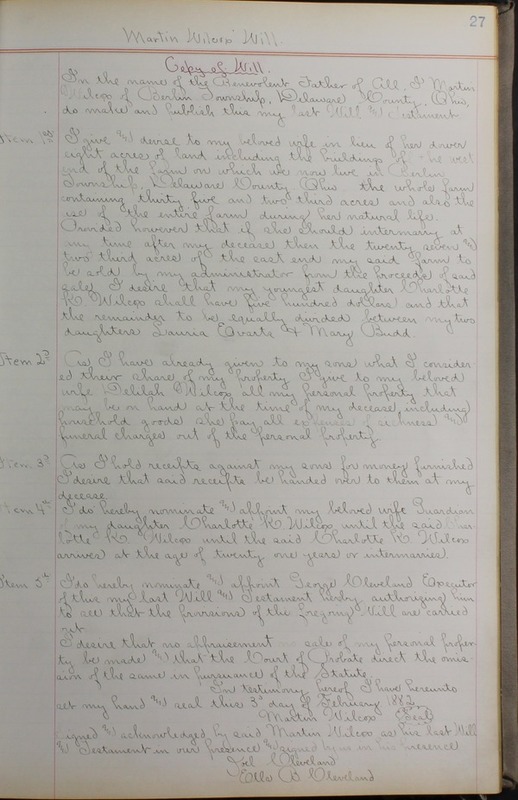 27
Martin Wilcox Will.
Copy of Will.
In the name of the Benevolent Father of All, I Martin
Wilcox of Berlin Township, Delaware County, Ohio,
do make and publish this my last Will & Testament
Item 1st I give & devise to my beloved wife in lieu of her dower
eight acres of land including the buildings off the west
end of the farm on which we now live in Berlin
Township, Delaware County Ohio the whole farm
containing thirty five and two third acres and also the
use of the entire farm during her natural life.
Provided however that if she should intermarry at
my time after my decease then the twenty seven &
two third acres of the east end my said farm to
be sold by my administrator from the proceeds of said
sale I desire that my youngest daughter Charlotte
K. Wilcox shall have five hundred dollars and that
the remainder to be equally divided between my two
daughters Lauria Evarts & Mary Budd.
Item 2d As I have already given to my sons what I consider
ed their share of my property I give to my beloved
wife Delilah Wilcox all my personal property that
may be on hand at the time of my decease including
household goods she pay all expenses of sickness &
funeral charges out of the personal property
Item. 3d As I hold receipts against my sons for money furnished
I desire that said receipts be handed over to them at my
decease.
Item 4th I do hereby nominate & appoint my beloved wife Guardian
of my daughter Charlotte K Wilcox until the said Char
lotte K. Wilcox until the said Charlotte K. Wilcox
arrives at the age of twenty one years or intermarries.
Item 5th I do hereby nominate & appoint George Cleveland Executor
of this my last Will & Testament hereby authorizing him
to see that the provisions of this foregoing Will are carried
out.
I desire that no appraisement sale of my personal proper
ty be made & that the Court of Probate direct the omis
sion of the same in pursuance of the Statute.
In testimony hereof I have hereunto
set my hand & seal this 3d day of February 1882
Martin Wilcox Seal
Signed & acknowledged by said Martin Wilcox as his last Will
& Testament in our presence & signed by us in his presence
Joel Cleveland
Ella B Cleveland